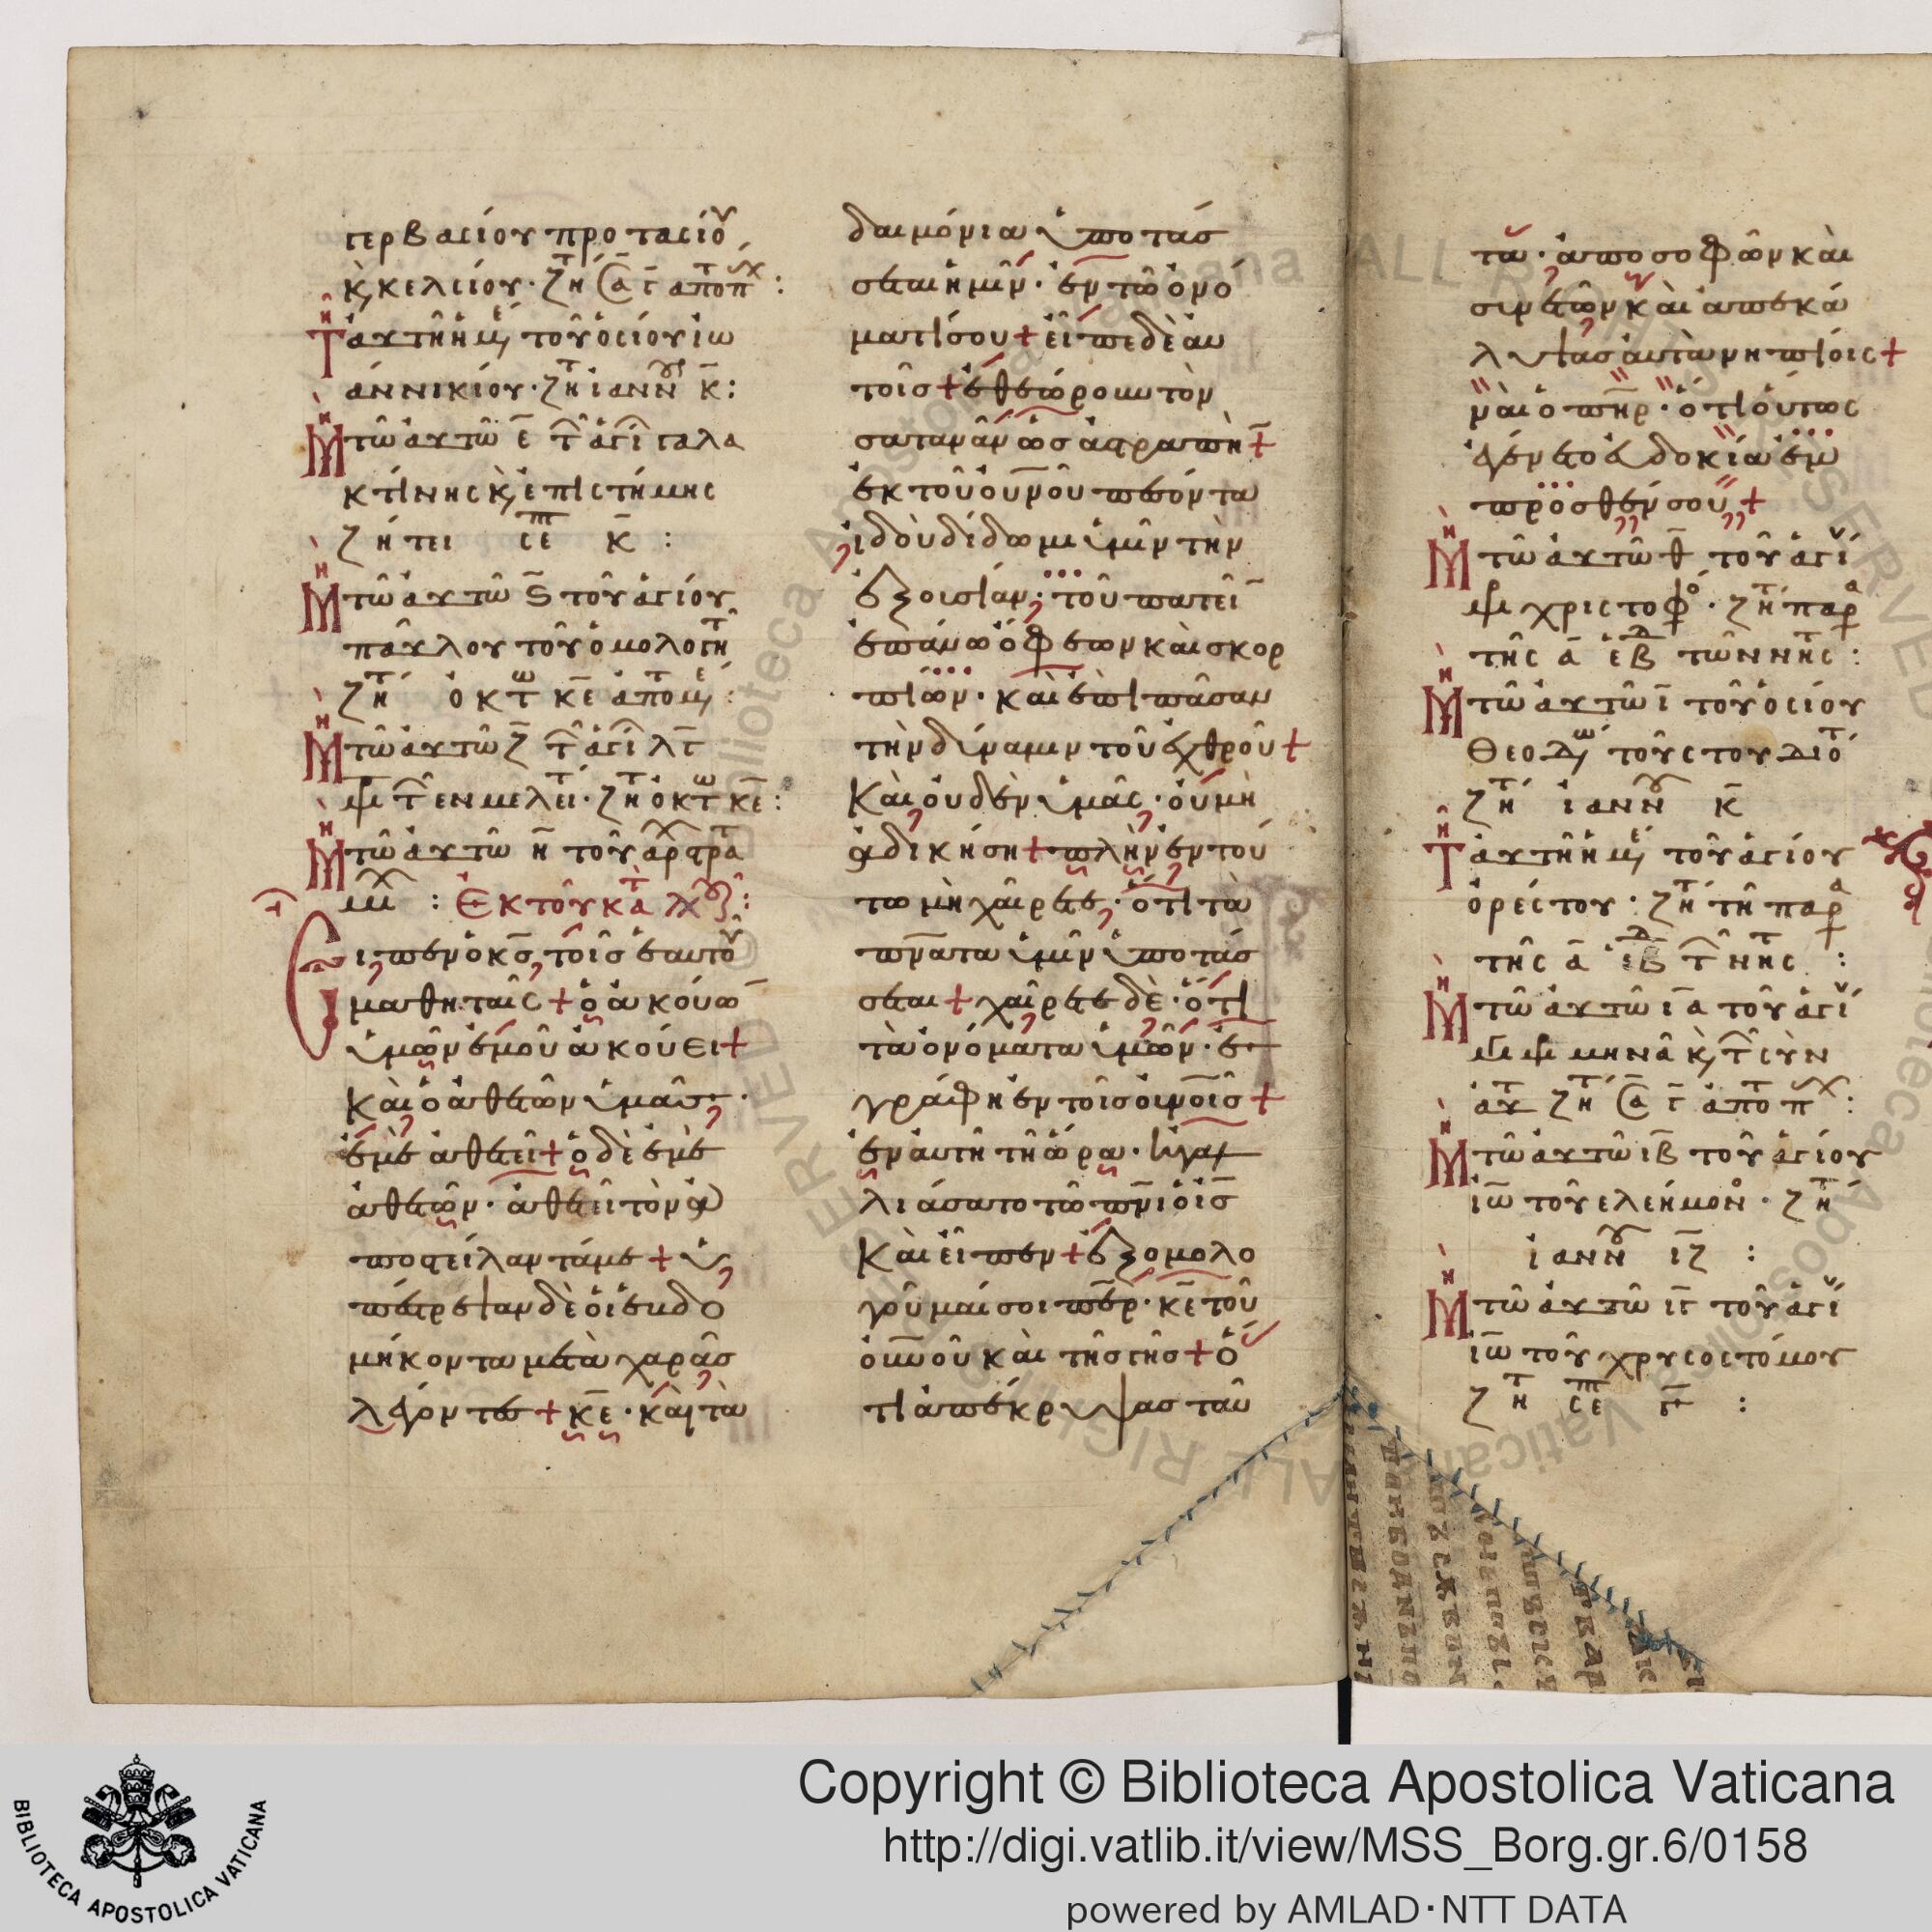 γερβασίου προτασίου
κ κελσίου· ζητ α γ αποπ:
Τη αυτῆ ἡμ τοῦ ὁσίου ἰω
αννικίου· ζητ ἰανν κ:
Μη τῶ αὐτῶ ε τ ἁγι γαλα
κτίνης κ ἐπιστήμης
ζήτει σεπ κ :
Μη τῶ αὐτῶ ς τοῦ ἁγίου
παύλου τοῦ ὁμολογητ
ζητ ὀκτω κε ἀπο μ :
Μη τῶ αὐτῶ ζ τ ἁγι λγ
μ τ εν μελετ· ζητ ὀκτω κε:
Μη τῶ αὐτῶ η τοῦ αρχστρατ
μχ : Εκ τοῦ κατ λουκ:
Εἶπεν ὁ κς τοῖς ἑαυτοῦ
μαθηταῖς + ὁ ἀκούω
ὑμῶν ἐμοῦ ἀκούει +
Καὶ ὁ ἀθετῶν ὑμᾶς·
ἐμὲ ἀθετεῖ + ὁ δὲ ἐμὲ
ἀθετῶν· ἀθετεῖ τὸν ἀ
ποστείλαντά με + ὑ
πέστρεψαν δὲ οἱ ἑβδο
μήκοντα μετὰ χαρᾶς
λέγοντες + κε· καὶ τὰ
δαιμόνια ὑποτάσ
σεται ἡμῖν· ἐν τῶ ὀνό
ματί σου + εἶπε δὲ αυ
τοῖς + ἐθεώρουν τὸν
σατανᾶν ὡς ἀστραπὴ +
ἐκ τοῦ οὐνοῦ πεσόντα
ἰδοὺ δίδωμι ὑμῖν τὴν
ἐξουσίαν· τοῦ πατεῖ
ἐπάνω ὄφεων καὶ σκορ
πίων· καὶ ἐπὶ πᾶσαν
τὴν δύναμιν τοῦ ἐχθροῦ +
Καὶ οὐδὲν ὑμᾶς· οὐ μὴ
ἀδικήση + πλὴν ἐν τού
τω μὴ χαίρετε· ὅτι τὰ
πνατα ὑμῖν ὑποτάσ
σεται + χαίρετε δὲ· ὅτι
τὰ ὀνόματα ὑμῶν· ἐ
γράφη ἐν τοῖς οὐνοῖς +
ἐν αὐτῆ τῆ ὥρα· ἠγαλ
λιάσατο τῶ πνι ὁ ις
Καὶ εἶπεν + ἐξομολο
γοῦμαί σοι περ· κε τοῦ
οὐνοῦ καὶ τῆς γῆς + ὅ
τι ἀπέκρυψας ταῦ
τα· ἀπὸ σοφῶν καὶ
συνετῶν καὶ ἀπεκά
λυψας αὐτὰ νηπίοις +
ναὶ ὁ πηρ· ὅτι οὕτως
ἐγένετο εὐδοκία ἐμ
προσθέν σου +
Μη τῶ αὐτῶ θ τοῦ ἁγί
μ χριστοφο· ζητ παρα
τῆς α ἑβδ τῶν νης τ :
Μη τῶ αὐτῶ ι τοῦ ὁσίου
Θεοδω τοῦ στουδιοτ
ζητ ἰανν κ
Τη αυτῆ ἡμ τοῦ ἁγίου
ὀρέστου· ζητ τῆ παρα
τῆς α ἑβδ τ νης τ :
Μη τῶ αὐτῶ ια τοῦ ἁγί
μεμ μηνᾶ κ τ σὺν
αυτ ζητ α γ ἀπο π :
Μη τῶ αὐτῶ ιβ τοῦ ἁγίου
ἰω τοῦ ελεήμον· ζητ
ἰανν ιζ :
Μη τῶ αὐτῶ ιγ τοῦ ἁγί
ἰω τοῦ χρυσοστόμου
ζητ σεπ ιγ :
Copyright © Biblioteca Apostolica Vaticana
http://digi.vatlib.it/view/MSS_Borg.gr.6/0158
powered by AMLAD·NTT DATA
BIBLIOTECA APOSTOLICA VATICANA